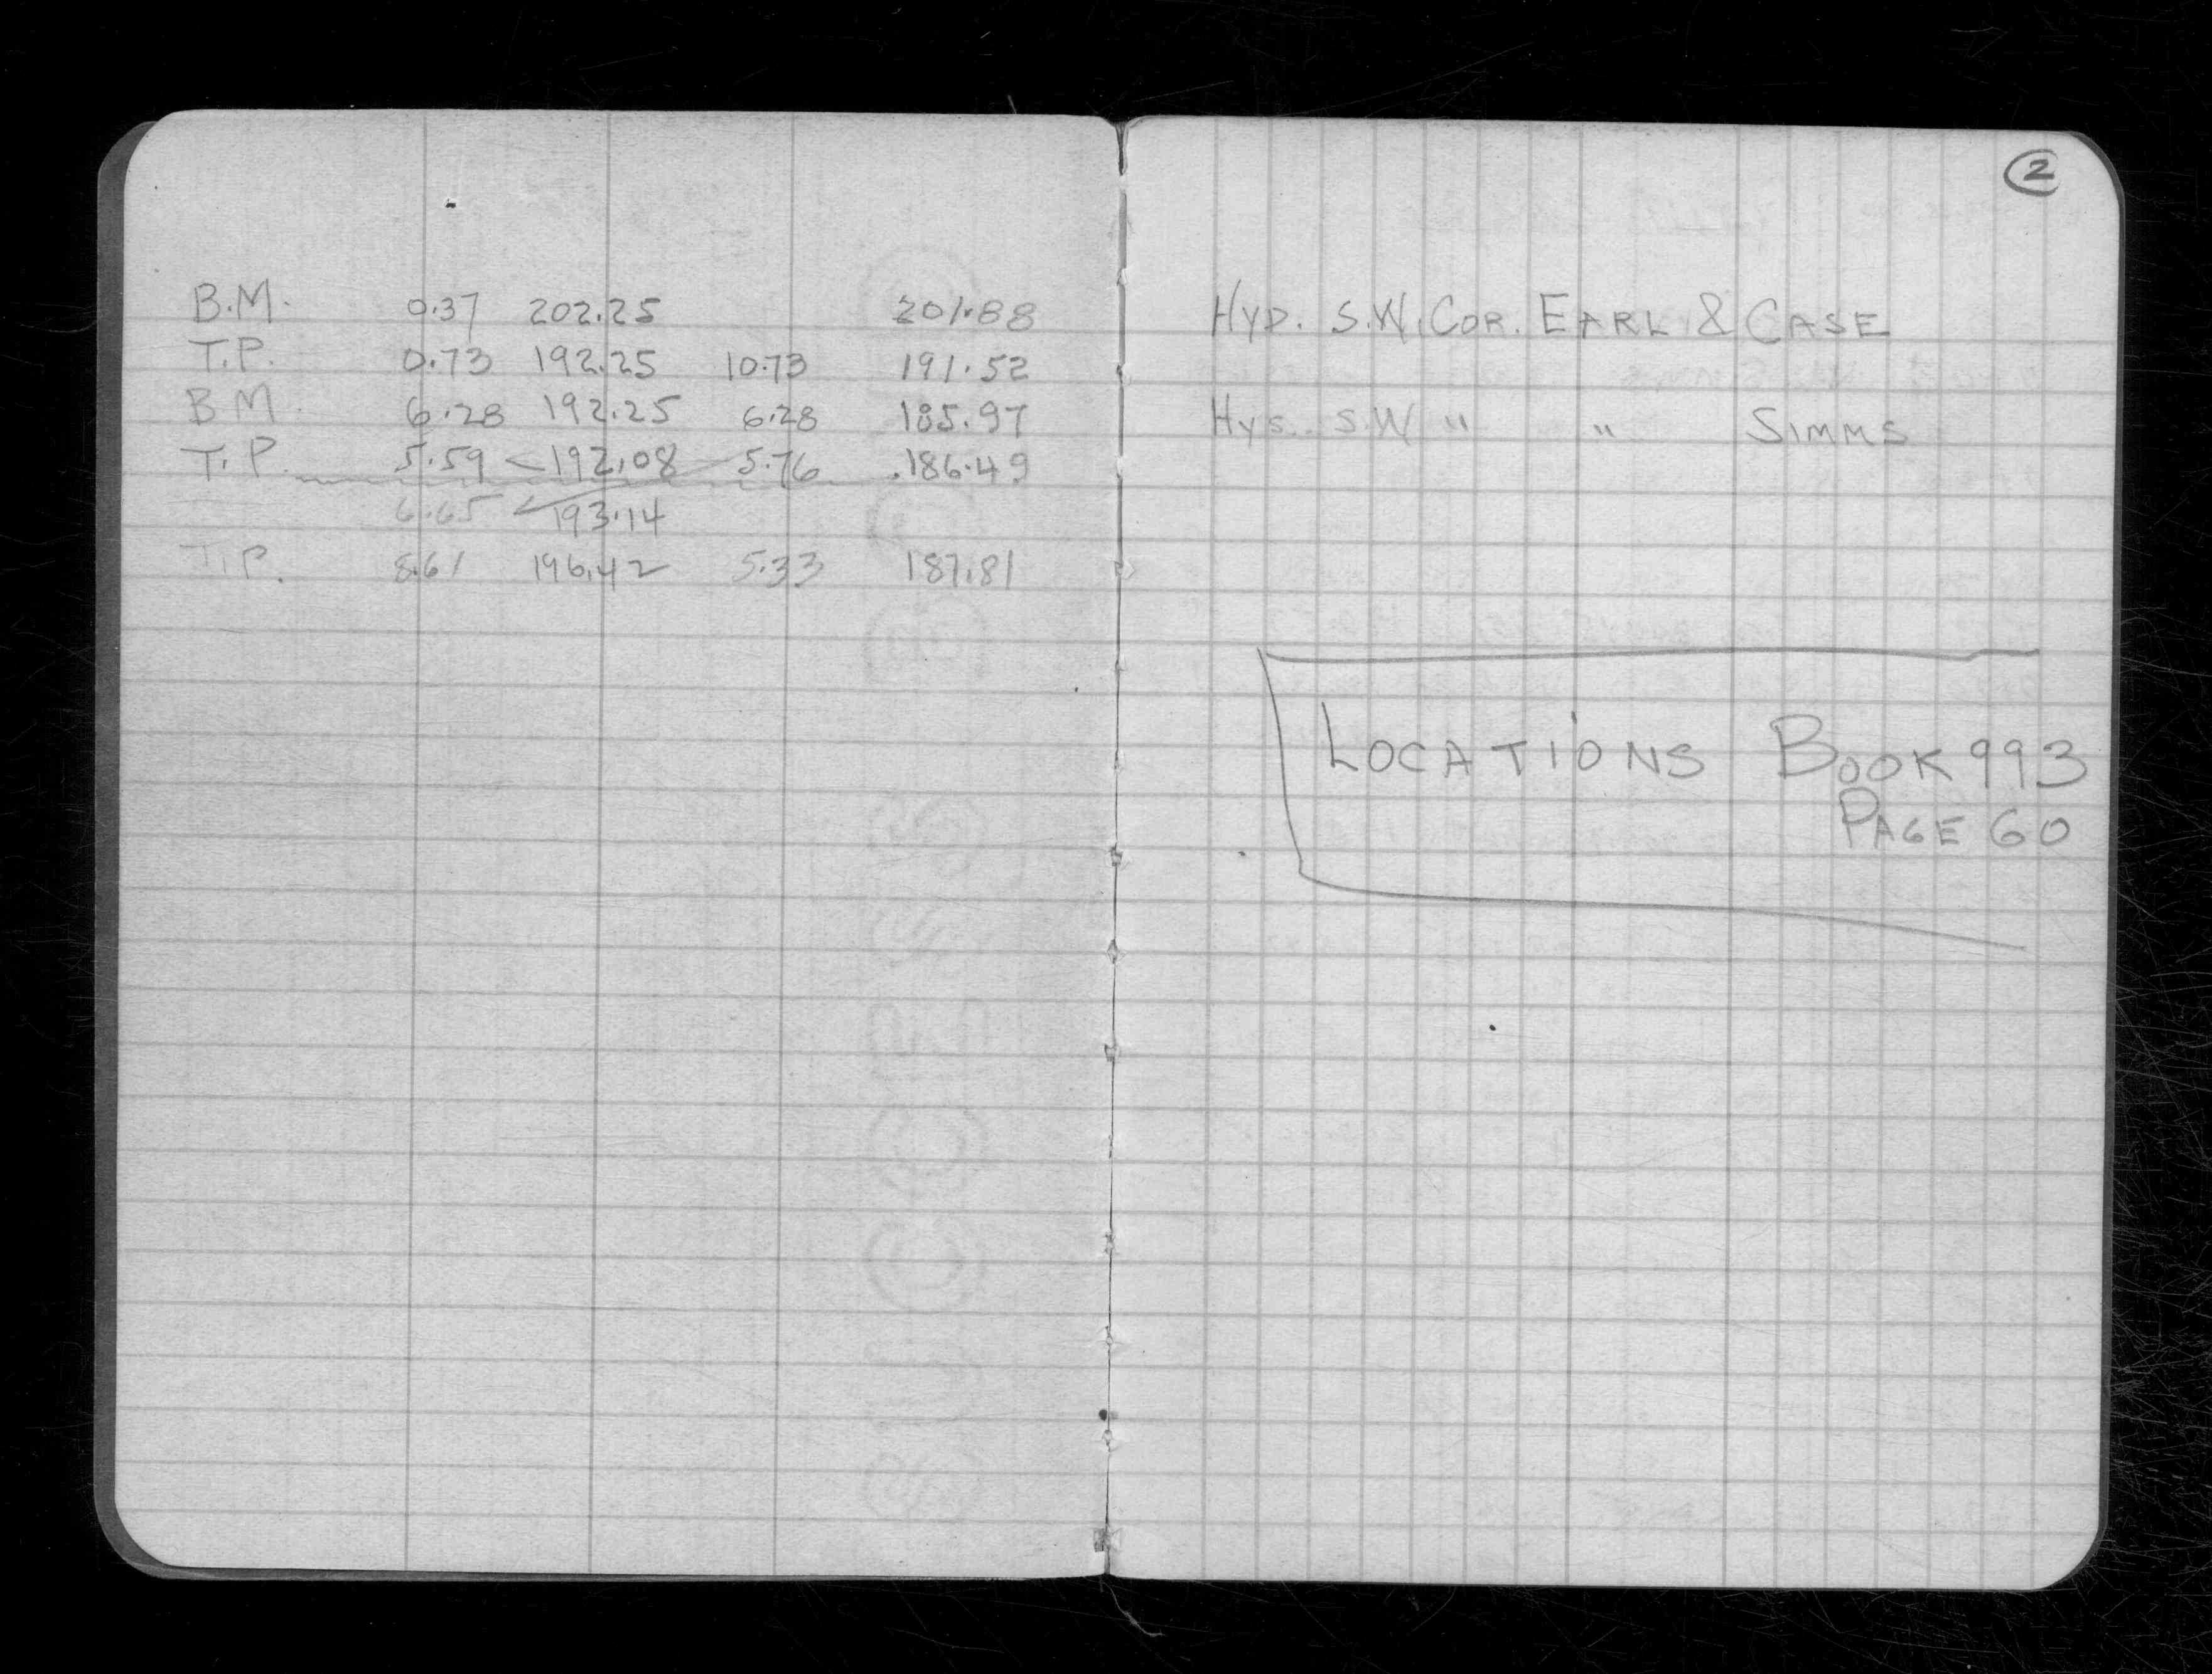 2
B.M. 0.37 202.25 201.88 HYD. S.W. COR. EARL & CASE
T.P. 0.73 192.25 10.73 191.52
B.M. 6.28 192.25 6.28 185.97 HYS. S.W " " SIMMS
T.P. 5.59 192.08 5.76 186.49
6.65 193.14
T.P. 8.61 196.42 5.33 187.81
LOCATIONS BOOK 993
PAGE 60